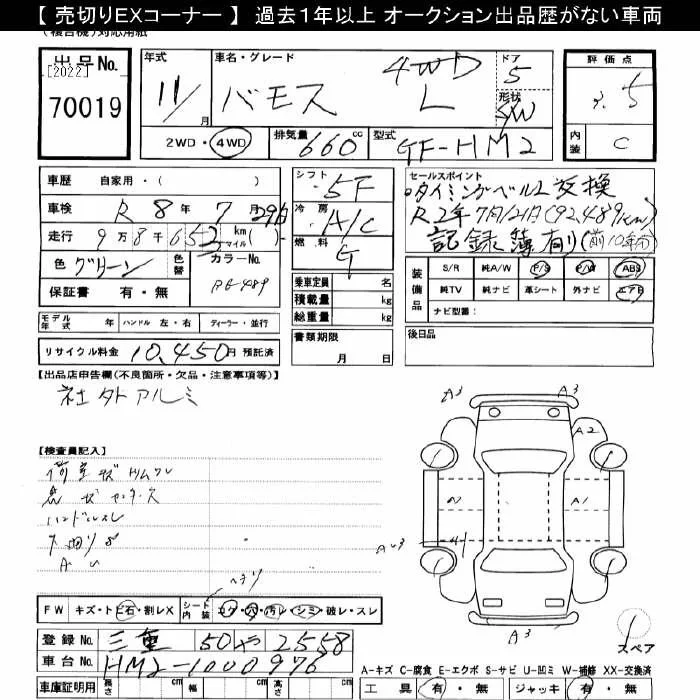 【 売切りEXコーナー 】 過去1年以上 オークション出品歴がない車両
対応用紙
出品No.
[2022]
70019
年式
11/月
車名・グレード
バモス 4WD L
ドア
5
形状
SW
評価点
3.5
内装
C
2WD・4WD
排気量
660cc
型式
GF-HM2
車歴 自家用・( )
車検 R 8年 7月 29日
走行 9万8千652 km(マイル)
色 グリーン
色替
カラーNo.
保証書 有・無
シフト 5F
冷房 A/C
燃料 G
乗車定員 名
積載量 kg
総重量 kg
書類期限
月 日
セールスポイント
・タイミングベルト交換
R2年7月12日(92,489km)
記録簿有り
装備品
S/R 純A/W P/S P/W ABS
純TV 純ナビ 革シート 外ナビ エアB
ナビ型番:
モデル年式 年 ハンドル 左・右 ディーラー・並行
リサイクル料金 10,450円 預託済
後日品
【出品店申告欄(不良箇所・欠品・注意事項等)】
社外アルミ
【検査員記入】
ハンドルスレ
A3
A3
A2
A1
A3
スペア
FW キズ・トビ石・割レX
シート内装 コゲ・穴・汚レ・シミ・破レ・スレ
登録No. 三重 50 や 2558
車台No. HM2-1000976
車庫証明用 長さ cm 幅 cm 高さ cm
A-キズ C-腐食 E-エクボ S-サビ U-凹ミ W-補修 XX-交換済
工具 有・無 ジャッキ 有・無